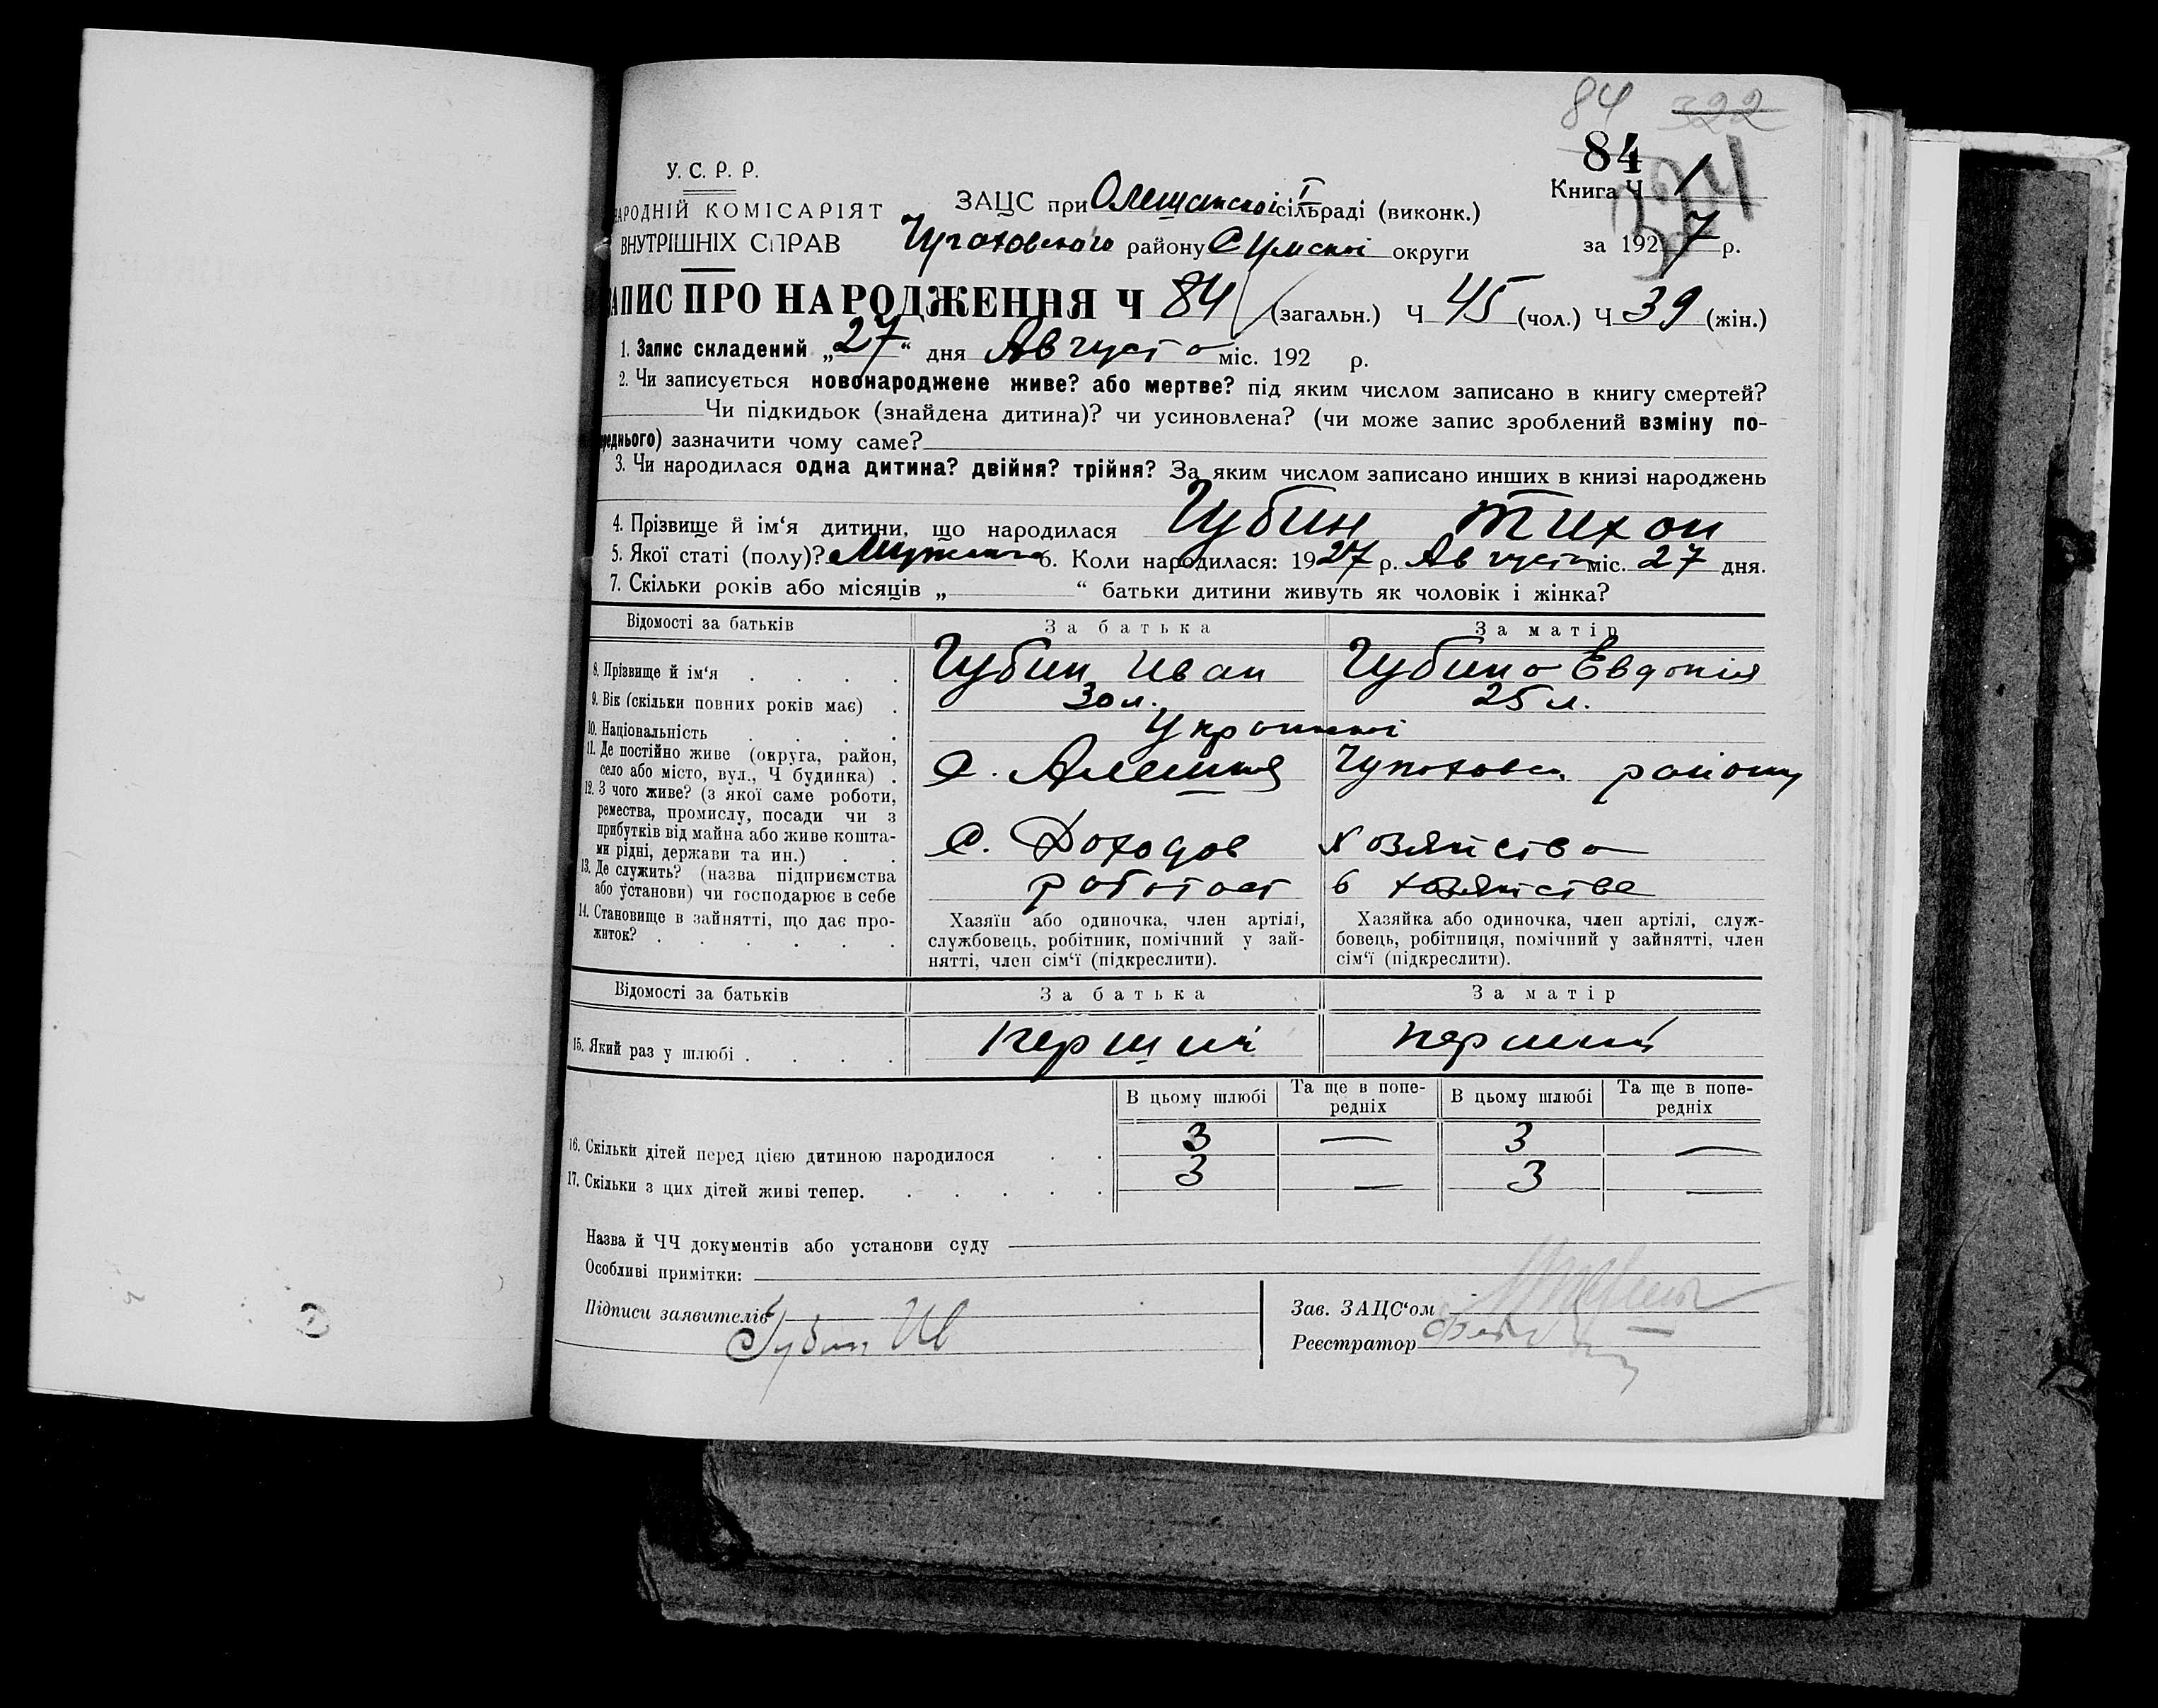 84 322
84
У. С. Р. Р.
Книга Ч 1
321
НАРОДНІЙ КОМІСАРІЯТ
ЗАЦС при Олешанскоі І сільраді (виконк.)
ВНУТРІШНІХ СПРАВ
району Сумскоі округи
за 1927 р.
ЗАПИС ПРО НАРОДЖЕННЯ Ч 84 (загальн.) Ч 45 (чол.) Ч 39 (жін.)
1. Запис складений „27“ дня Августа міс. 192 р.
2. Чи записується новонароджене живе? або мертве? під яким числом записано в книгу смертей?
Чи підкидьок (знайдена дитина)? чи усиновлена? (чи може запис зроблений взміну по-
реднього) зазначити чому саме?
3. Чи народилася одна дитина? двійня? трійня? За яким числом записано инших в книзі народжень
4. Прізвище й ім‘я дитини, що народилася Губин Тихон
5. Якої статі (полу)? 6. Коли народилася: 1927 р. Августа міс. 27 дня.
7. Скільки років або місяців „ “ батьки дитини живуть як чоловік і жінка?
Відомості за батьків За батька За матір
8. Прізвище й ім‘я . . . . Губин Иван Губина Евдокия
9. Вік (скільки повних років має) . 30 л. 25 л.
10. Національність . . . . Украинці
11. Де постійно живе (округа, район,
село або місто, вул., Ч будинка) . С. Алешня району
12. З чого живе? (з якої саме роботи,
ремества, промислу, посади чи з
прибутків від майна або живе кошта-
ми рідні, держави та ин.) . . С. Доходов хозяйства
13. Де служить? (назва підприємства
або установи) чи господарює в себе работает в хозяйстве
14. Становище в зайнятті, що дає про-
житок? . . . . . .
Хазяїн або одиночка, член артілі,
службовець, робітник, помічний у зай-
нятті, член сім‘ї (підкреслити).
Хазяйка або одиночка, член артілі, служ-
бовець, робітниця, помічний у зайнятті, член
сім‘ї (підкреслити).
Відомості за батьків За батька За матір
15. Який раз у шлюбі . . . . Перший перший
В цьому шлюбі Та ще в попе-
редніх В цьому шлюбі Та ще в попе-
редніх
16. Скільки дітей перед цією дитиною народилося . . 3 — 3 —
17. Скільки з цих дітей живі тепер. . . . . . 3 — 3 —
Назва й ЧЧ документів або установи суду
Особливі примітки:
Підписи заявителів
Губин Ив
Зав. ЗАЦС‘ом
Реєстратор